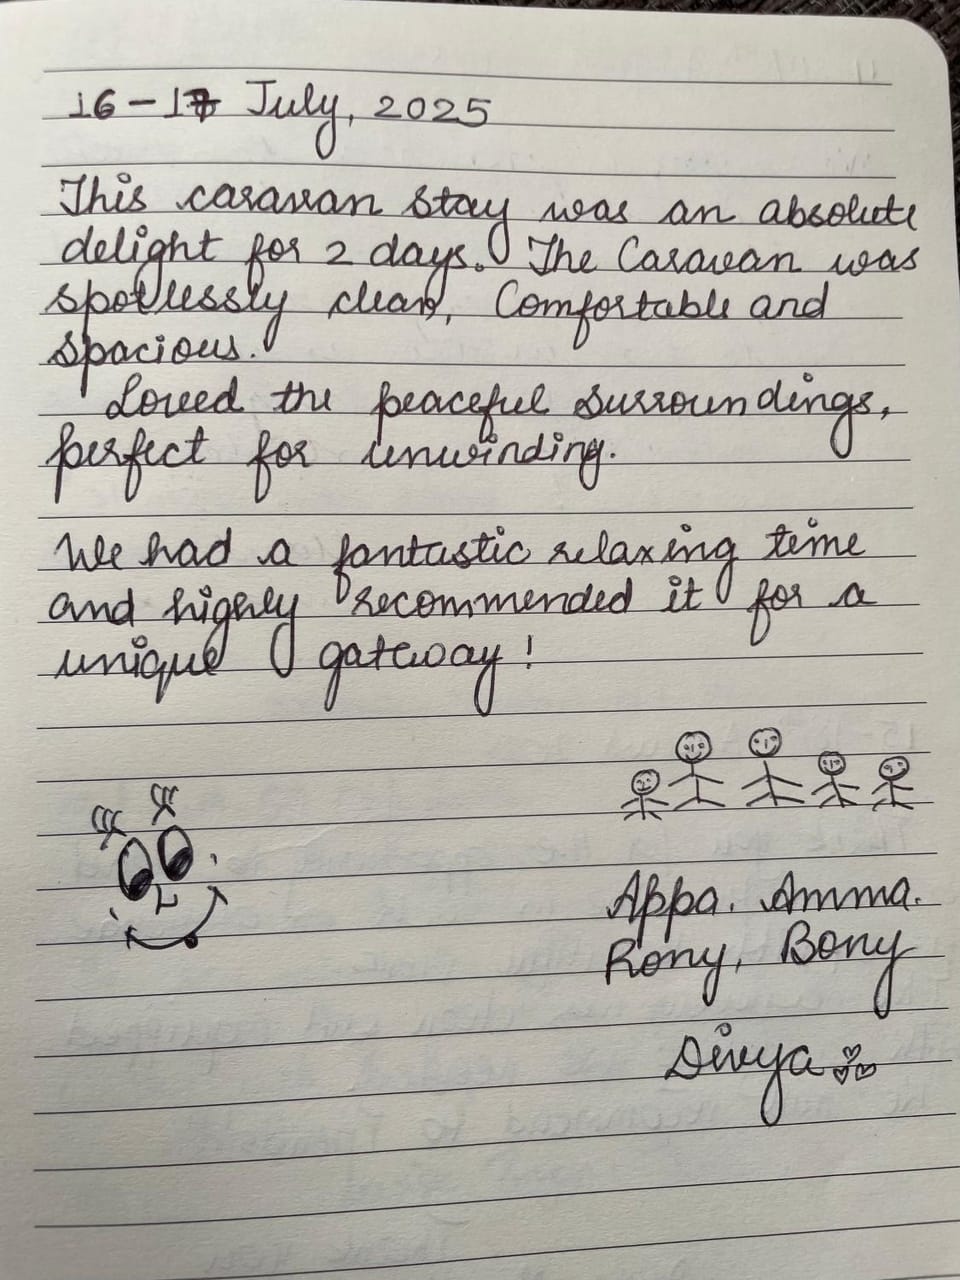 16-17 July, 2025
This caravan stay was an absolute
delight for 2 days. The Caravan was
spotlessly clean, Comfortable and
spacious.
Loved the peaceful surroundings,
perfect for unwinding.
We had a fantastic relaxing time
and highly recommended it for a
unique gateway!
Appa. Amma.
Rony, Bony
Divya